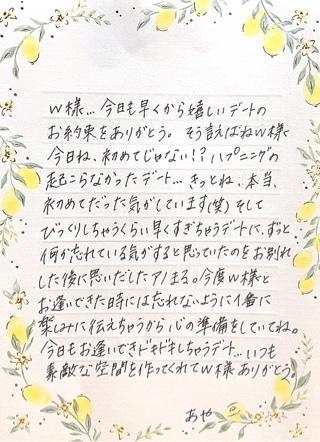 W様…今日も早くから嬉しいデートの
お約束をありがとう。そう言えばねW様
今日ね、初めてじゃない!?ハプニングの
起こらなかったデート…きっとね、本当、
初めてだった気がしています(笑)そして
びっくりしちゃうくらい早くすぎちゃうデートに、ずっと
何か忘れている気がすると思っていたのをお別れ
した後に思いだしたアノまる。今度W様と
お逢いできた時には忘れないように1番に
楽しみに伝えちゃうから心の準備をしていてね。
今日もお逢いできドキドキしちゃうデート…いつも
素敵な空間を作ってくれてW様ありがとう
あや